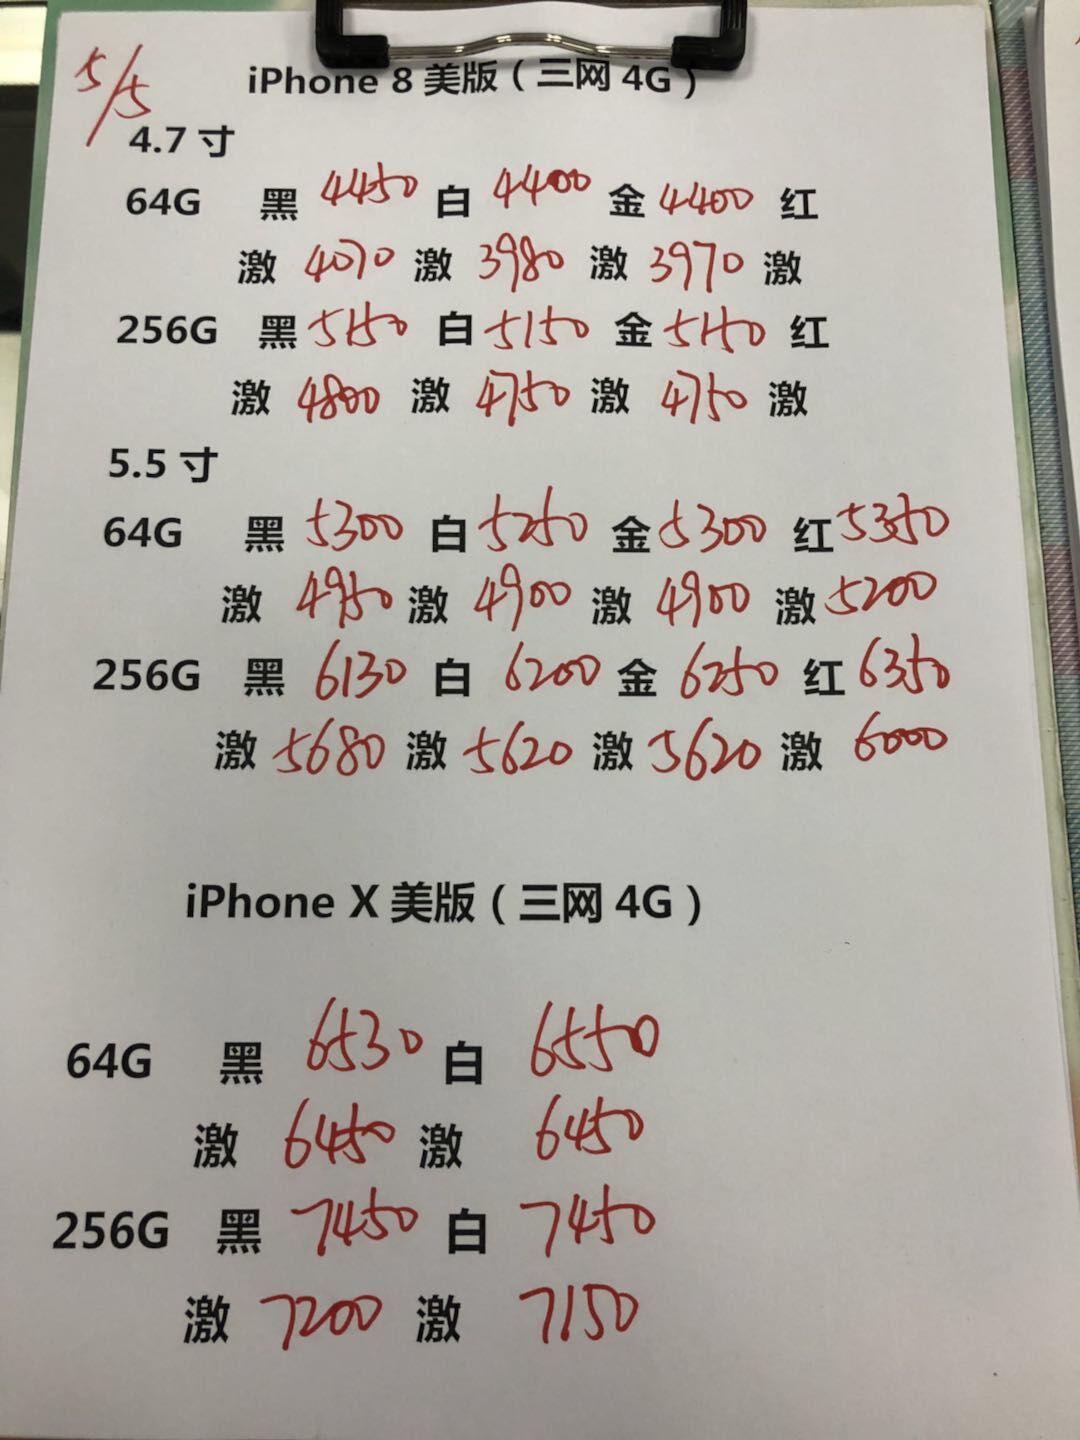 5/5
iPhone 8 美版（三网 4G）
4.7 寸
64G 黑 4450 白 4400 金 4400 红
激 4070 激 3980 激 3970 激
256G 黑 5150 白 5150 金 5150 红
激 4800 激 4750 激 4750 激
5.5 寸
64G 黑 5300 白 5250 金 5300 红 5350
激 4950 激 4900 激 4900 激 5200
256G 黑 6130 白 6200 金 6250 红 6350
激 5680 激 5620 激 5620 激 6000
iPhone X 美版（三网 4G）
64G 黑 6530 白 6550
激 6450 激 6450
256G 黑 7450 白 7450
激 7200 激 7150